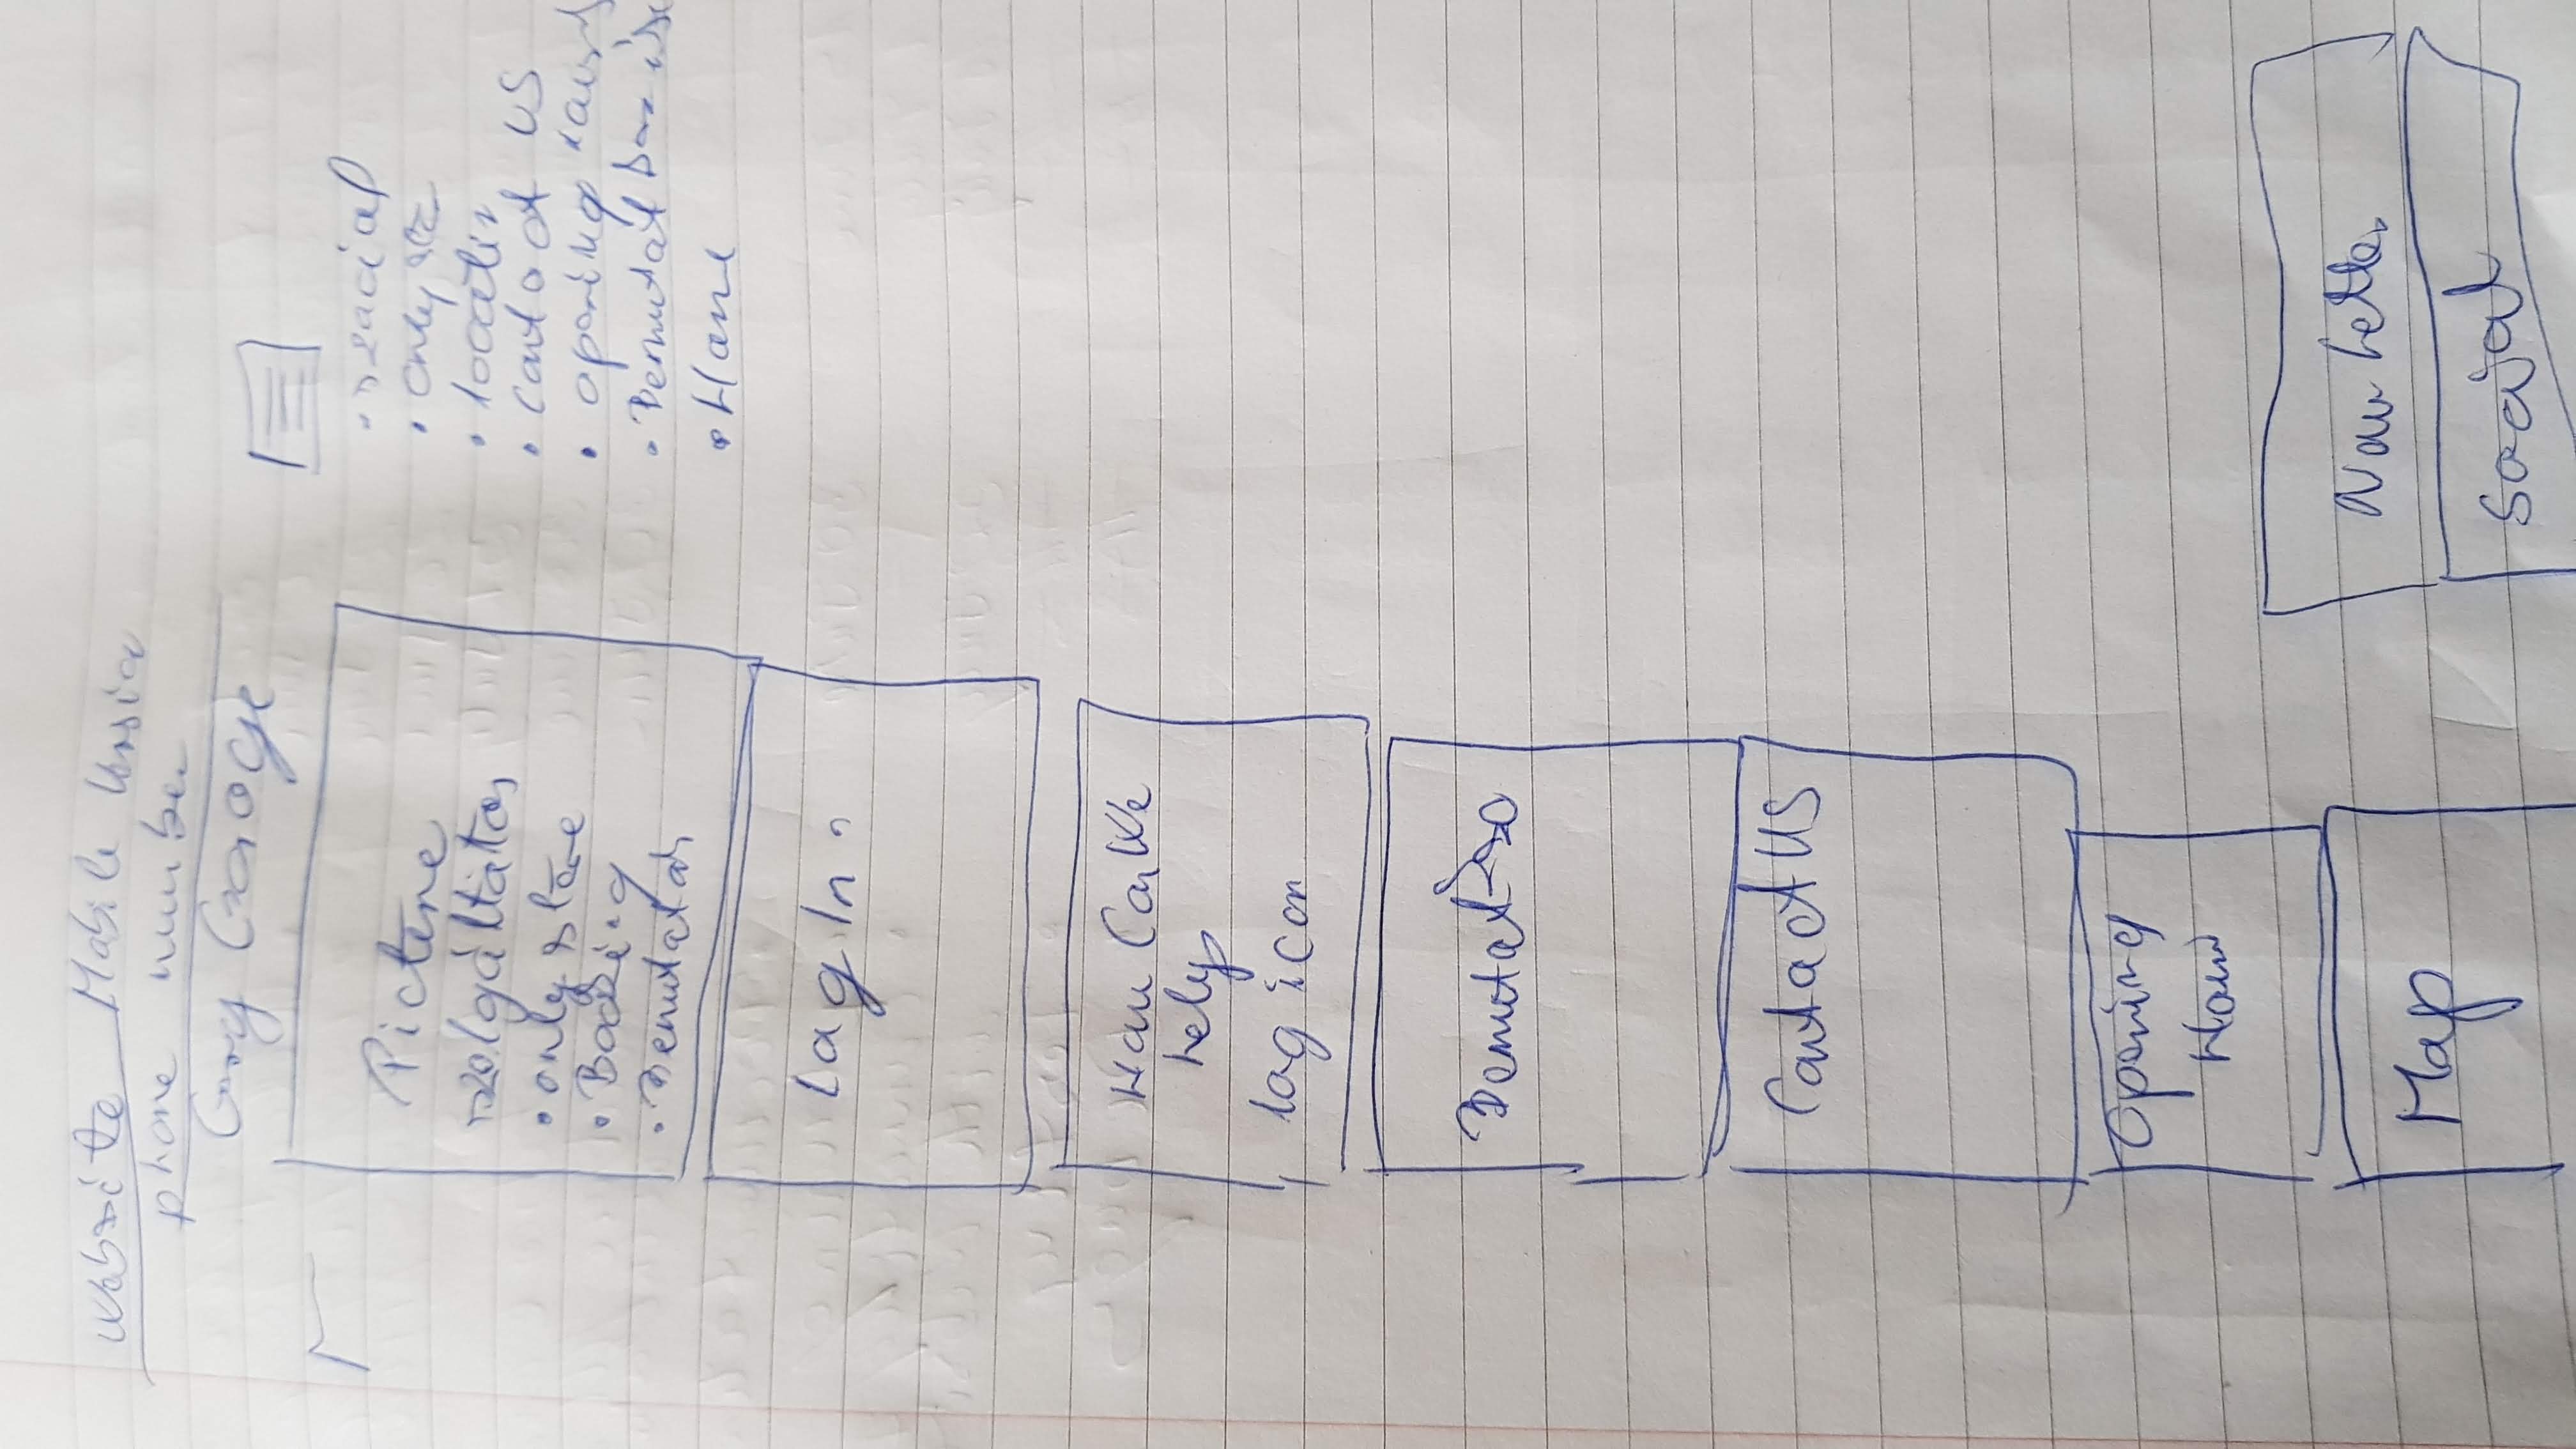 Website Mobile Version
phone number
Garage
Picture
szolgáltatás
• only store
• Booking
• Bemutatás
Log In
How Can We
help
log icon
Bemutat
Contact US
Opening
Hour
Map
• szocial
• only
• location
• contact US
• opening hours
• Bemutat
• Home
New Letter
Social